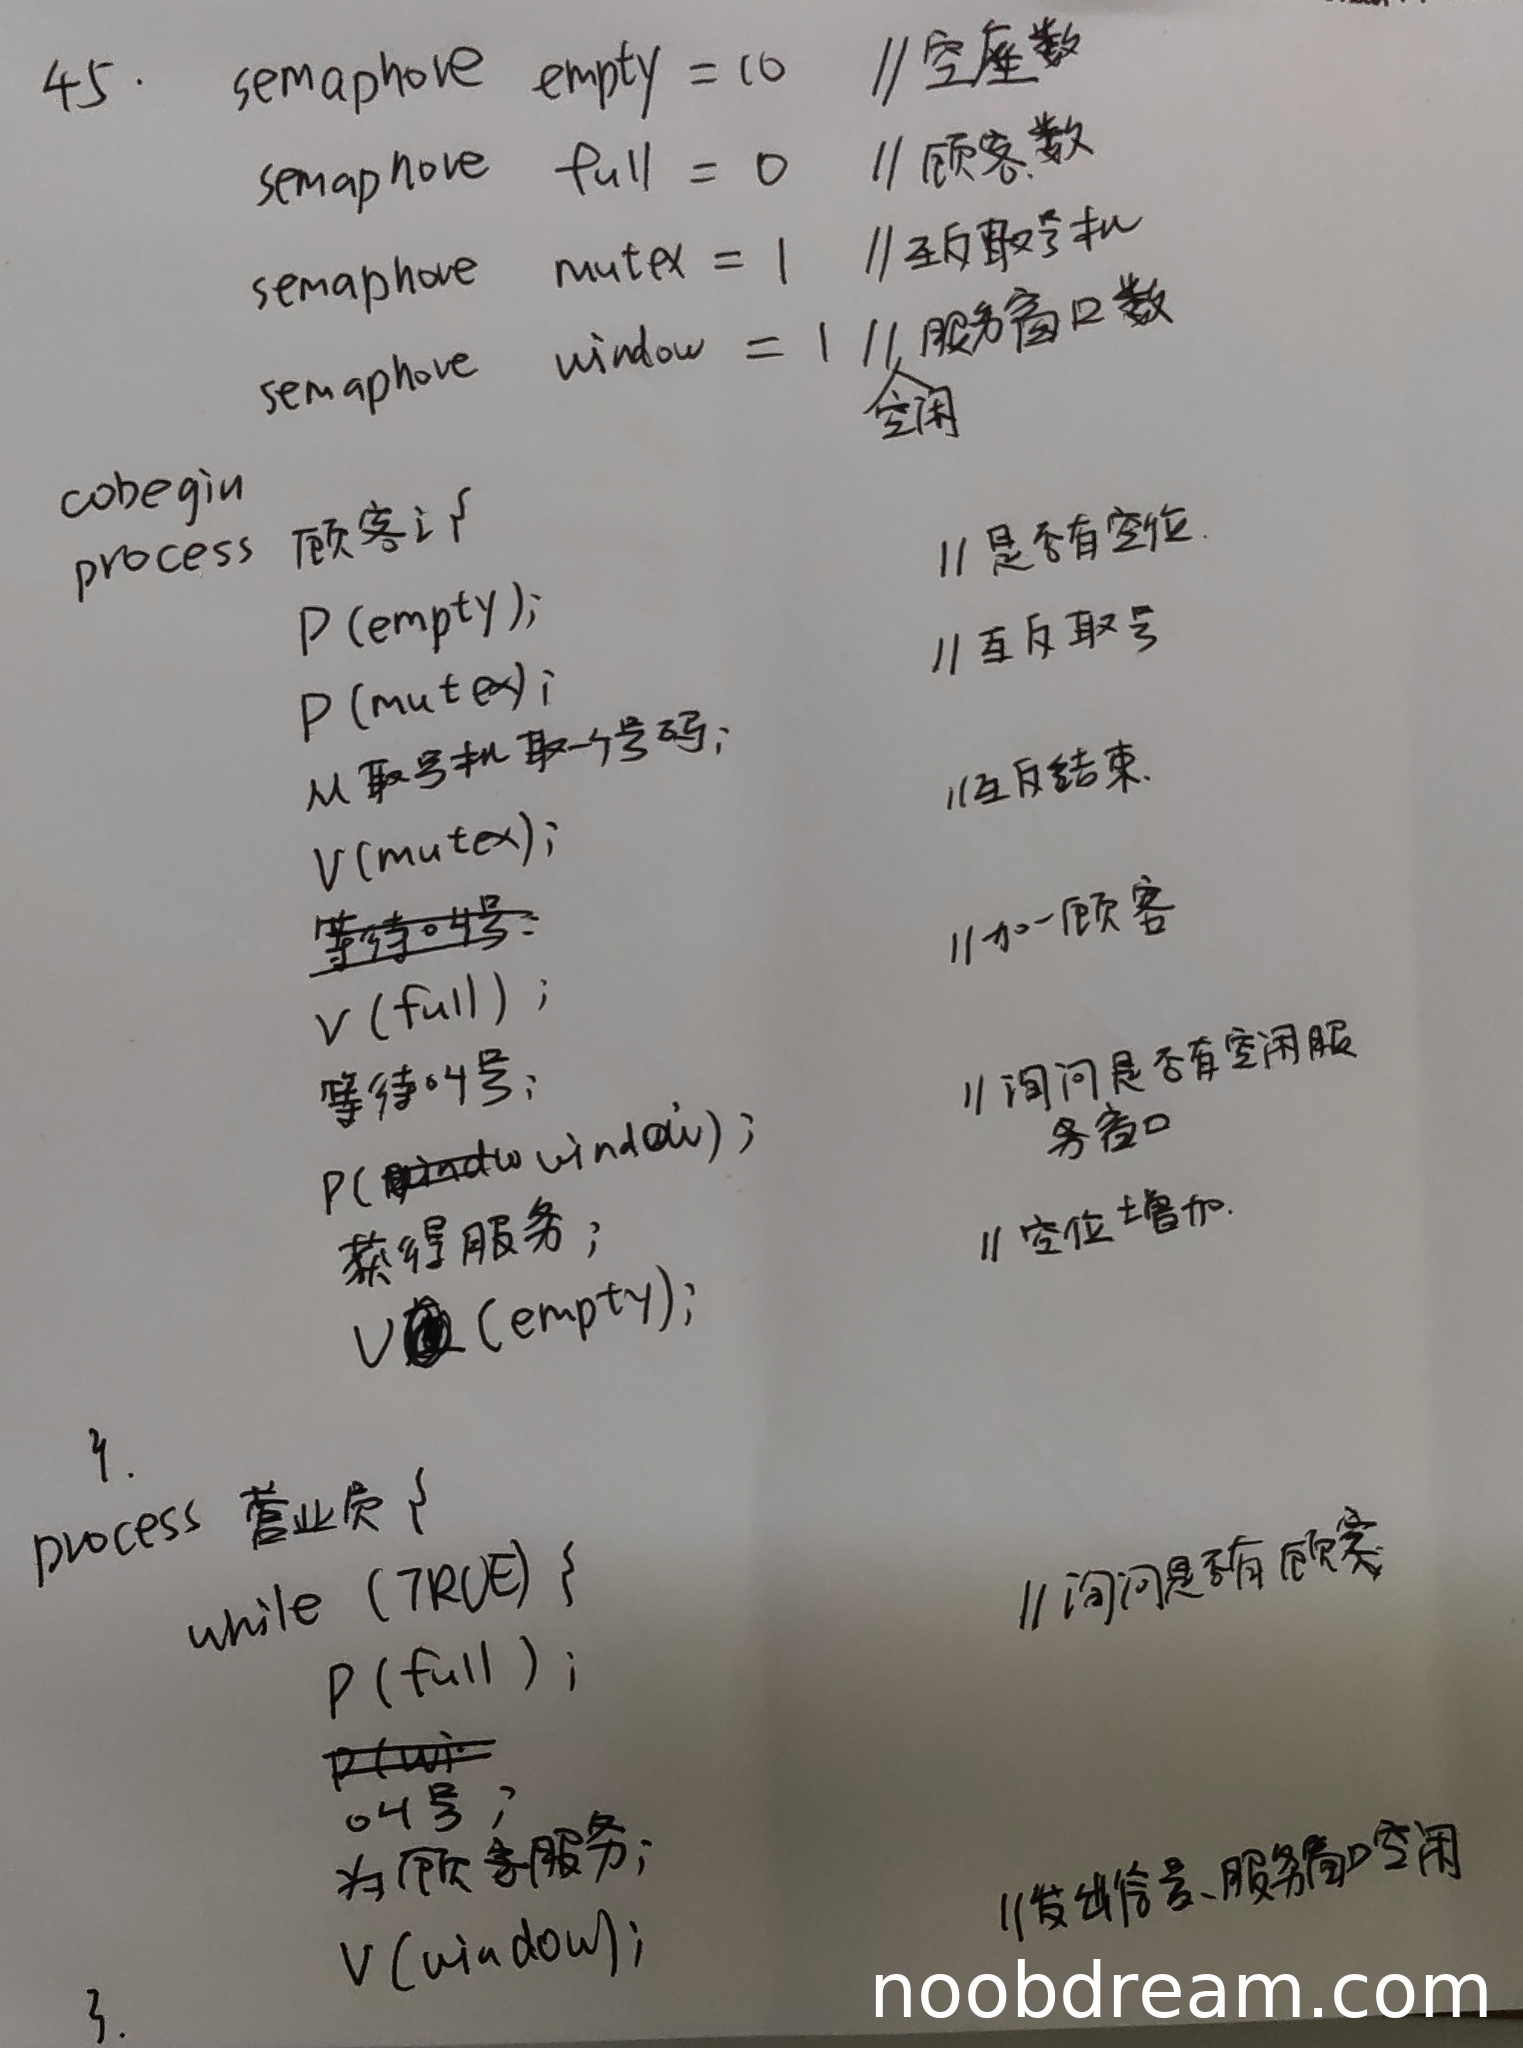 45. semaphore empty = 10 //空座数
semaphore full = 0 //顾客数
semaphore mutex = 1 //互斥取号机
semaphore window = 1 //服务窗口数
空闲
cobegin
process 顾客i {
P(empty); //是否有空位.
P(mutex); //互斥取号
从取号机取一个号码;
V(mutex); //互斥结束.
等待叫号;
V(full); //加一顾客
等待叫号;
P(window); //询问是否有空闲服
务窗口
获得服务;
V(empty); //空位增加.
}.
process 营业员 {
while (TRUE) {
P(full); //询问是否有顾客
P(wi
叫号;
为顾客服务;
V(window); //发出信号、服务窗口空闲
}.
noobdream.com